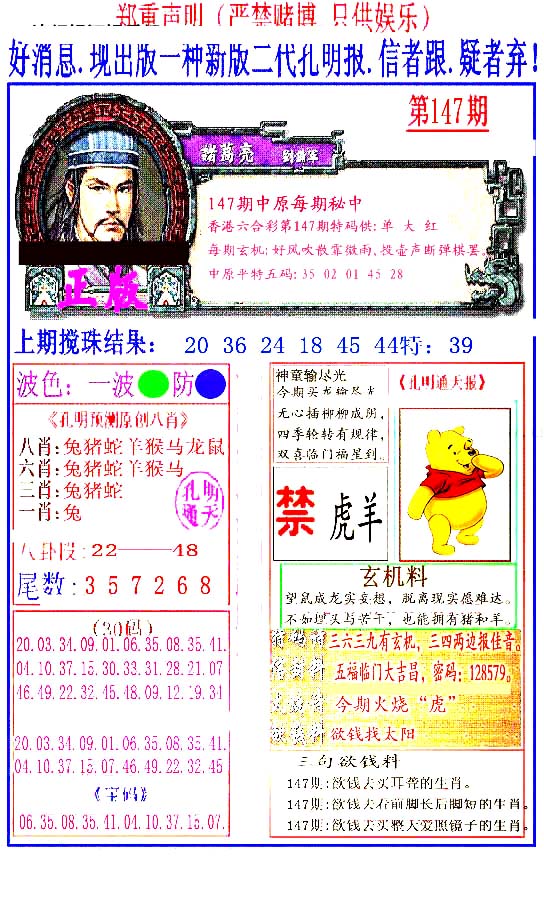 郑重声明（严禁赌博 只供娱乐）
好消息.现出版一种新版二代孔明报.信者跟.疑者弃!
第147期
諸葛亮
147期中原每期秘中
香港六合彩第147期特码供: 单 大 红
每期玄机: 好风吹散霏微雨,投壶声断弹棋罢。
中原平特五码: 35 02 01 45 28
正版
上期搅珠结果： 20 36 24 18 45 44特：39
波色：一波 防
《孔明预测原创八肖》
八肖:兔猪蛇羊猴马龙鼠
六肖:兔猪蛇羊猴马
三肖:兔猪蛇
一肖:兔
孔明通天
八卦段:22——48
尾数:357268
(30码)
20.03.34.09.01.06.35.08.35.41.
04.10.37.15.30.33.31.28.21.07
46.49.22.32.45.48.09.12.19.34
20.03.34.09.01.06.35.08.35.41.
04.10.37.15.07.46.49.22.32.45
《宝码》
06.35.08.35.41.04.10.37.15.07.
神童输尽光
今期买龙输尽光
无心插柳柳成阴,
四季轮转有规律,
双喜临门福星到。
《孔明通天报》
禁
虎羊
玄机料
望鼠成龙实妄想，脱离现实愿难达。
不如埋头与苦干，也能拥有猪和羊。
三六三九有玄机，三四两边报佳音。
五福临门大吉昌，密码：128579。
今期火烧“虎”
欲钱找太阳
三句欲钱料
147期:欲钱去买耳聋的生肖。
147期:欲钱去看前脚长后脚短的生肖。
147期:欲钱去买整天爱照镜子的生肖。